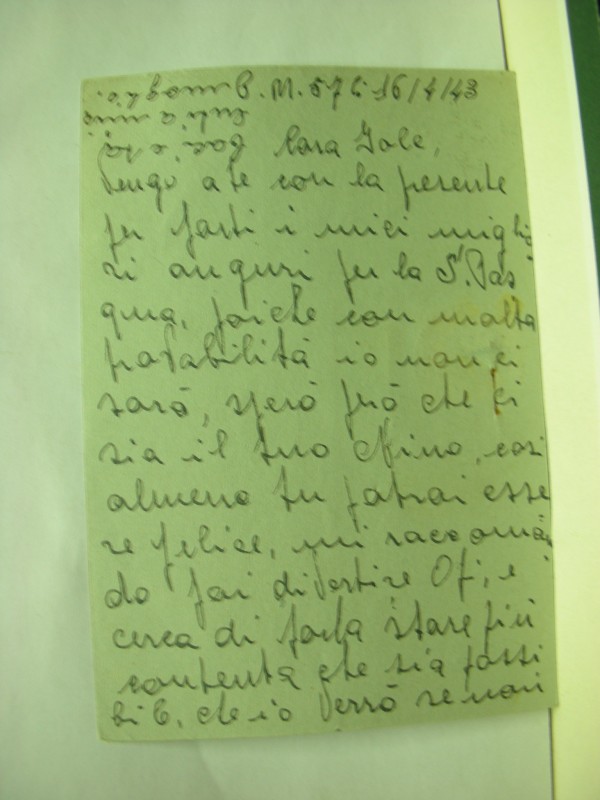 P. M. 57 li 16/4/43
Cara Jole,
Vengo a te con la perente
per farti i miei miglio
ri auguri per la S. Pas
qua, poiche con molta
probabilità io non ci
sarò, spero però che ci
sia il tuo Nino, cosi
almeno tu potrai esse
re felice, mi raccoman
do fai divertire Ofi, e
cerca di farla stare più
contenta che sia possi
bile, che io verrò se non